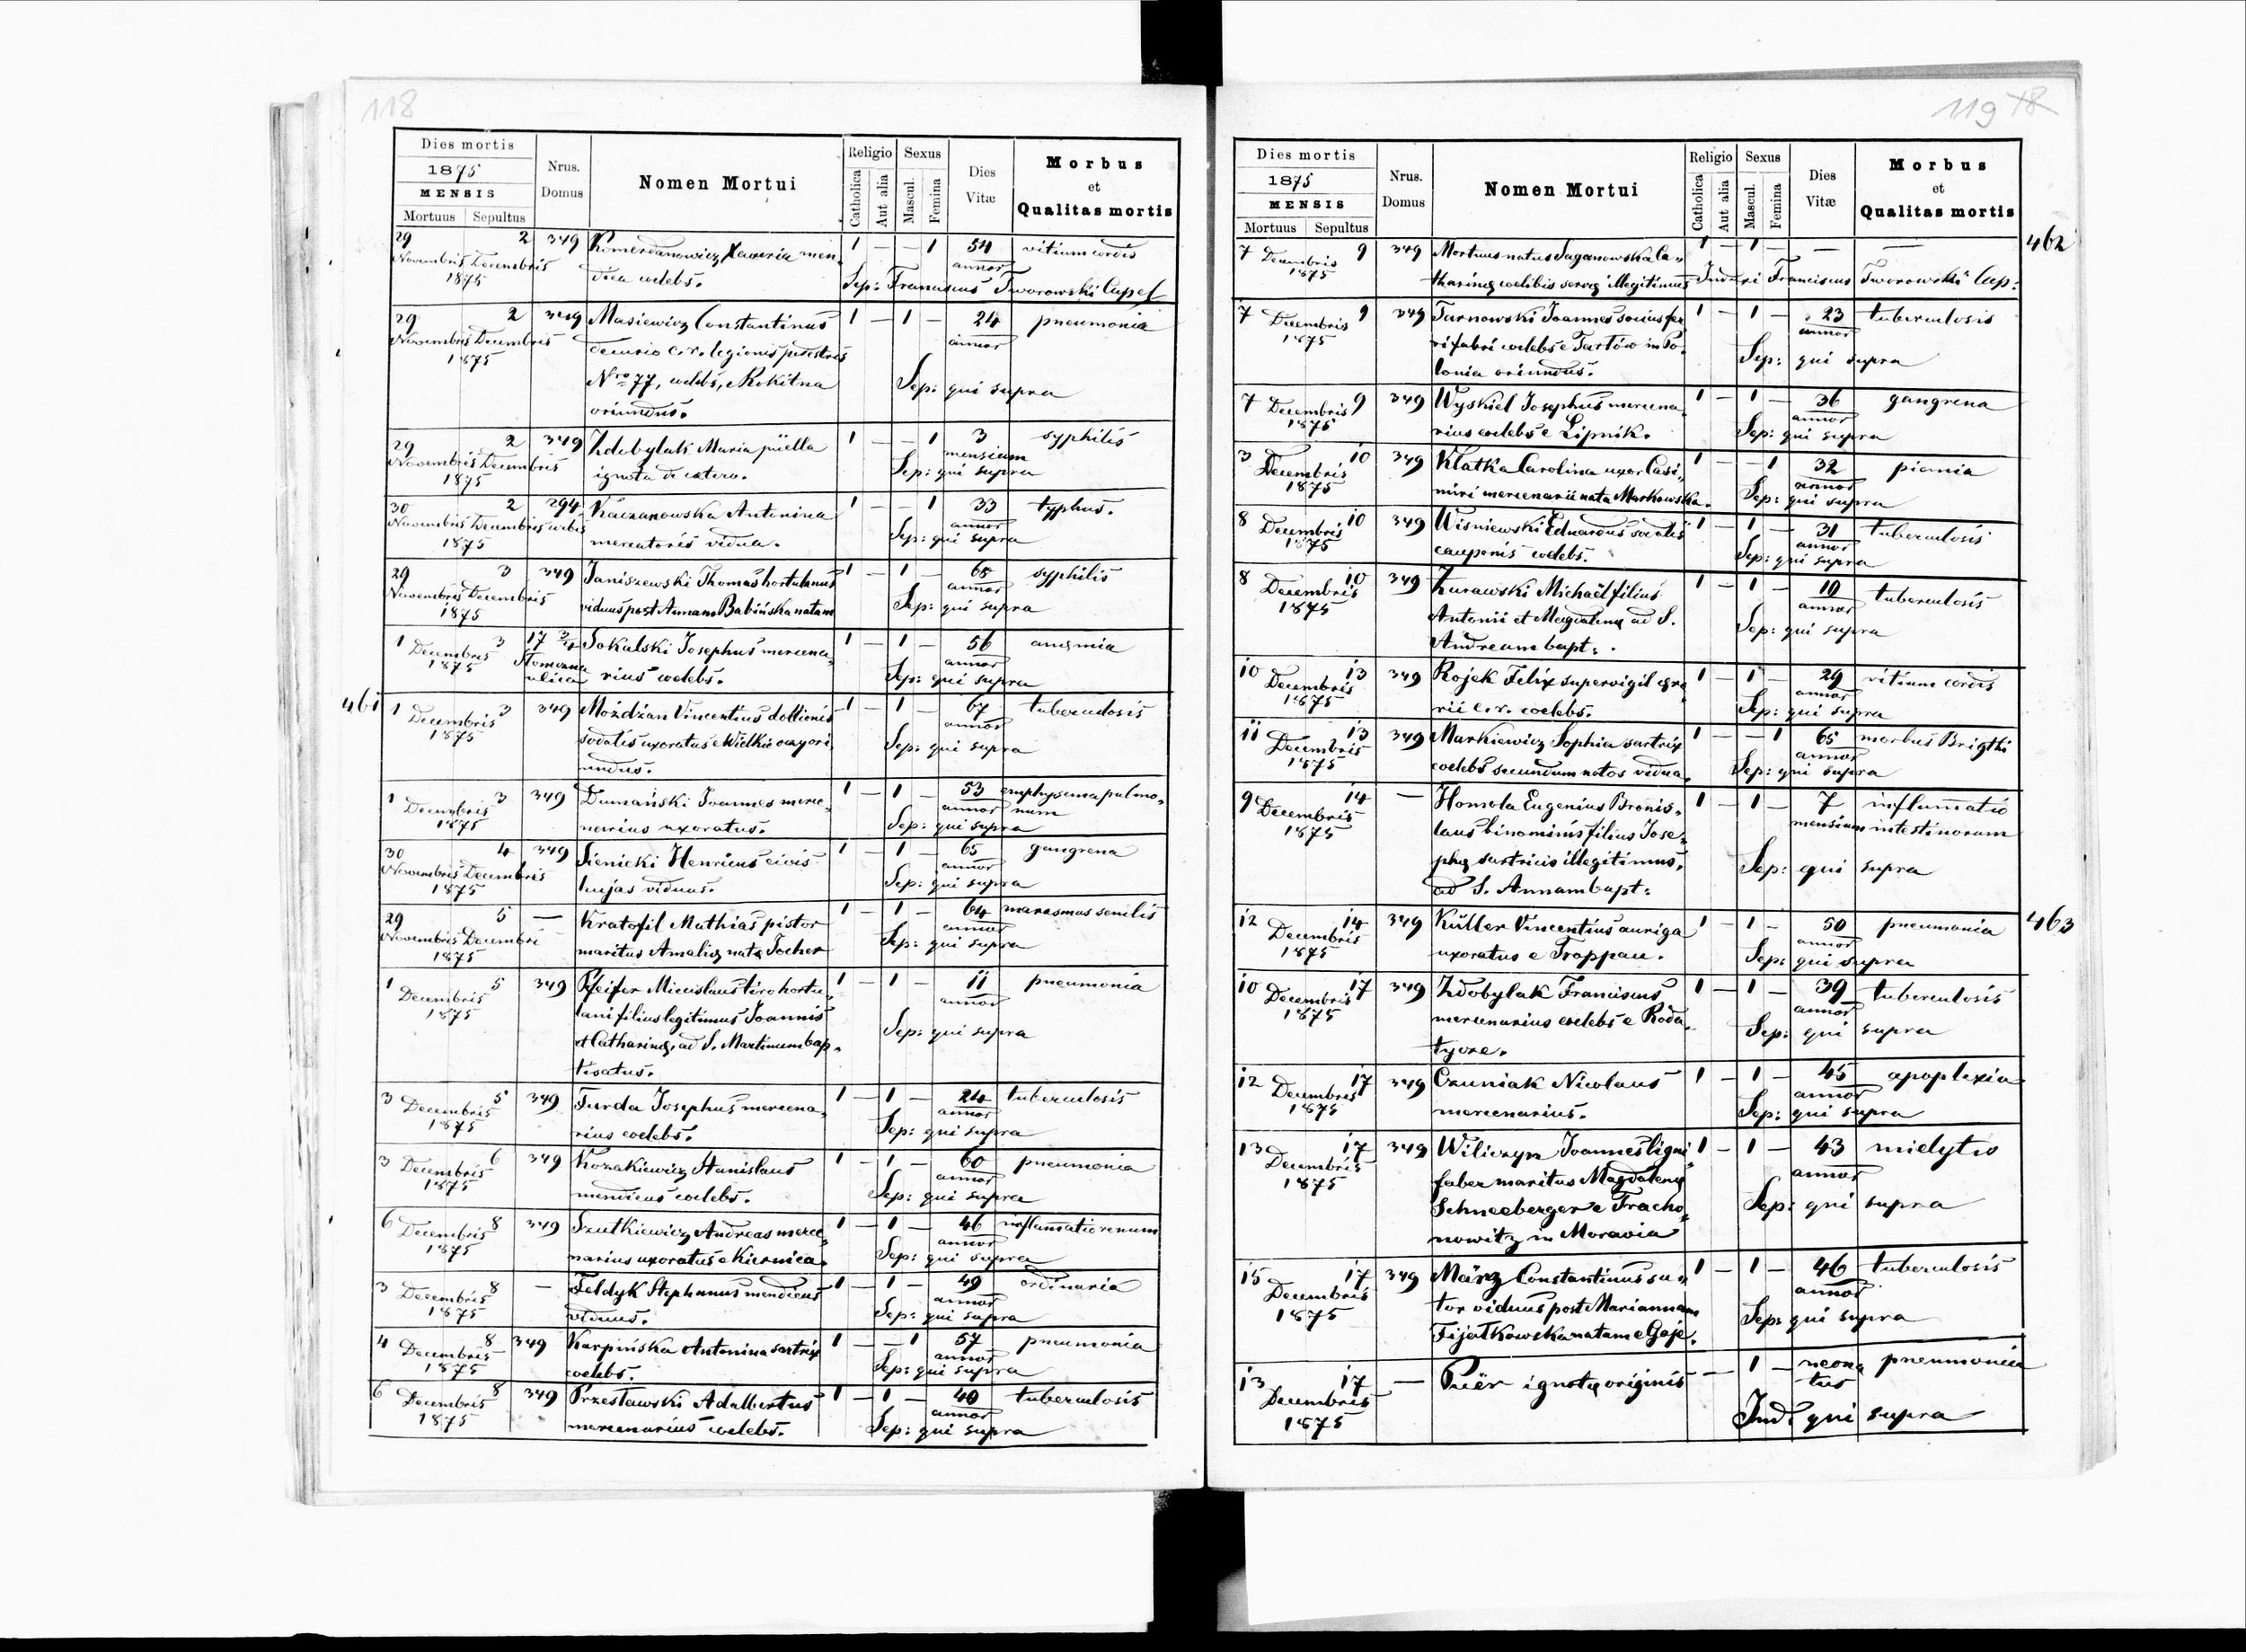 118
Dies mortis
1875
MENSIS
Mortuus Sepultus
Nrus.
Domus
Nomen Mortui
Religio
Catholica
Aut alia
Sexus
Mascul.
Femina
Dies
Vitæ
Morbus
et
Qualitas mortis
29 2 349 Komerdanowicz Xaveria men- 1 — — 1 54 vitium cordis
Novembris Decembris annor
1875 dica coelebs. Sep: Franciscus Tworowski Capel
29 2 349 Masiewicz Constantinus 1 — 1 — 24 pneumonia
Novembris Decembris decurio c. r. legionis pedestris annor
1875 Nro 77, coelebs, e Rokitna Sep: qui supra
oriundus.
29 2 349 Zdobylak Maria puella 1 — — 1 3 syphilis
Novembris Decembris mensium
1875 ignota de cetero. Sep: qui supra
30 2 294 Kaczanowska Antonina 1 — — 1 33 typhus.
Novembris Decembris urbis annor
1875 mercatoris vidua. Sep: qui supra
29 3 349 Janiszewski Thomas hortulanus 1 — 1 — 68 syphilis
Novembris Decembris annor
1875 viduus post Annam Babińska natam Sep: qui supra
1 3 17 3/4 Sokalski Josephus mercena- 1 — 1 — 56 anæmia
Decembris annor
1875 ulica rius coelebs. Sep: qui supra
461
1 3 349 Moździan Vincentius doliionis 1 — 1 — 67 tuberculosis
Decembris annor
1875 sodalis uxoratus e Wielkie oczy ori- Sep: qui supra
undus.
1 3 349 Dumański Joannes merce- 1 — 1 — 53 emphysema pulmo-
Decembris annor num
1875 nerius uxoratus. Sep: qui supra
30 4 349 Sienicki Henricus civis 1 — 1 — 65 gangrena
Novembris Decembris annor
1875 hujas viduus. Sep: qui supra
29 5 — Kratofil Mathias pistor 1 — 1 — 64 marasmus senilis
Novembris Decembri annor
1875 maritus Amaliæ natæ Jocher Sep: qui supra
1 5 349 Pfeifer Miecislaus tiro hortu- 1 — 1 — 11 pneumonia
Decembris annor
1875 lani filius legitimus Joannis Sep: qui supra
et Catharinæ, ad S. Martinum bap-
tisatus.
3 5 349 Turda Josephus mercena- 1 — 1 — 24 tuberculosis
Decembris annor
1875 rius coelebs. Sep: qui supra
3 6 349 Kozakiewicz Stanislaus 1 — 1 — 60 pneumonia
Decembris annor
1875 mendicus coelebs. Sep: qui supra
6 8 349 Szutkiewicz Andreas merce- 1 — 1 — 46 inflamatio renum
Decembris annor
1875 narius uxoratus e Kiernica. Sep: qui supra
3 8 — Feldyk Stephanus mendicus 1 — 1 — 49 ordinaria
Decembris annor
1875 viduus. Sep: qui supra
4 8 349 Karpińska Antonina sartrix 1 — — 1 57 pneumonia
Decembris annor
1875 coelebs. Sep: qui supra
6 8 349 Przestawski Adalbertus 1 — 1 — 40 tuberculosis
Decembris annor
1875 mercenarius coelebs. Sep: qui supra
119
Dies mortis
1875
MENSIS
Mortuus Sepultus
Nrus.
Domus
Nomen Mortui
Religio
Catholica
Aut alia
Sexus
Mascul.
Femina
Dies
Vitæ
Morbus
et
Qualitas mortis
462
7 9 349 Mortuus natus Saganowska Ca- 1 — 1 — — —
Decembris
1875 tharinæ coelibis servæ illegitimus Franciscus Tworowski Cap:
7 9 349 Turnowski Joannes socius fer- 1 — 1 — 23 tuberculosis
Decembris annor
1875 rifabri coelebs e Tartów in Po- Sep: qui supra
lonia oriundus.
7 9 349 Wyskiel Josephus mercena- 1 — 1 — 36 gangrena
Decembris annor
1875 rius coelebs e Lipnik. Sep: qui supra
3 10 349 Klatka Carolina uxor Casi- 1 — — 1 32 piemia
Decembris annor
1875 miri mercenarii nata Markowska. Sep: qui supra
8 10 349 Wisniewski Eduardus sodalis 1 — 1 — 31 tuberculosis
Decembris annor
1875 cauponis coelebs. Sep: qui supra
8 10 349 Zurawski Michaël filius 1 — 1 — 10 tuberculosis
Decembris annor
1875 Antonii et Magdalenæ ad S. Sep: qui supra
Andream bapt:
10 13 349 Rojek Felix supervigil ærа- 1 — 1 — 29 vitium cordis
Decembris annor
1875 rii c. r. coelebs. Sep: qui supra
11 13 349 Markiewicz Sophia sartrix 1 — — 1 65 morbus Brigthi
Decembris annor
1875 coelebs secundum notos vidua. Sep: qui supra
9 14 — Homola Eugenius Bronis- 1 — 1 — 7 inflamatio
Decembris mensium intestinorum
1875 laus binominis filius Jose-
phæ sartricis illegitimus, Sep: qui supra
ad S. Annam bapt:
463
12 14 349 Küller Vincentius auriga 1 — 1 — 50 pneumonia
Decembris annor
1875 uxoratus e Troppau. Sep: qui supra
10 17 349 Zdobylak Franciscus 1 — 1 — 39 tuberculosis
Decembris annor
1875 mercenarius coelebs e Roda- Sep: qui supra
tycze.
12 17 349 Czuniak Nicolaus 1 — 1 — 45 apoplexia
Decembris annor
1875 mercenarius. Sep: qui supra
13 17 349 Wiliczyn Joannes ligni- 1 — 1 — 43 mielytis
Decembris annor
1875 faber maritus Magdalenæ Sep: qui supra
Schneeberger e Tracho-
nowitz in Moravia
15 17 349 März Constantinus su- 1 — 1 — 46 tuberculosis
Decembris annor
1875 tor viduus post Mariannam Sep: qui supra
Fijałkowska natam e Gaje.
13 17 — Puër ignotæ originis — 1 — neona- pneumonia
Decembris tus
1875 Ind. qui supra